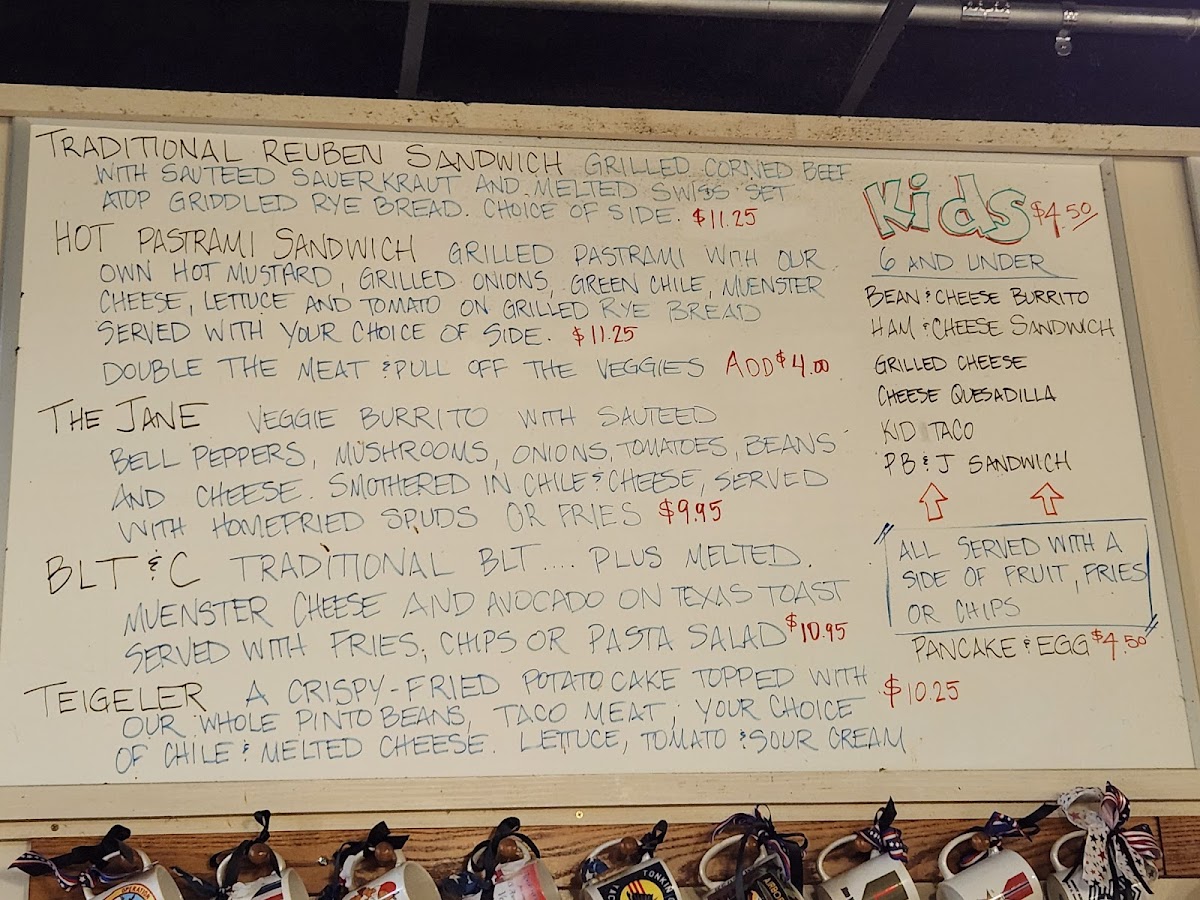 TRADITIONAL REUBEN SANDWICH GRILLED CORNED BEEF
WITH SAUTEED SAUERKRAUT AND MELTED SWISS SET
ATOP GRIDDLED RYE BREAD. CHOICE OF SIDE. $11.25
HOT PASTRAMI SANDWICH GRILLED PASTRAMI WITH OUR
OWN HOT MUSTARD, GRILLED ONIONS, GREEN CHILE, MUENSTER
CHEESE, LETTUCE AND TOMATO ON GRILLED RYE BREAD
SERVED WITH YOUR CHOICE OF SIDE. $11.25
DOUBLE THE MEAT & PULL OFF THE VEGGIES ADD $4.00
THE JANE VEGGIE BURRITO WITH SAUTEED
BELL PEPPERS, MUSHROOMS, ONIONS, TOMATOES, BEANS
AND CHEESE. SMOTHERED IN CHILE & CHEESE, SERVED
WITH HOMEFRIED SPUDS OR FRIES $9.95
BLT & C TRADITIONAL BLT.... PLUS MELTED.
MUENSTER CHEESE AND AVOCADO ON TEXAS TOAST
SERVED WITH FRIES, CHIPS OR PASTA SALAD $10.95
TEIGELER A CRISPY-FRIED POTATO CAKE TOPPED WITH $10.25
OUR WHOLE PINTO BEANS, TACO MEAT, YOUR CHOICE
OF CHILE & MELTED CHEESE. LETTUCE, TOMATO & SOUR CREAM
Kids $4.50
6 AND UNDER
BEAN & CHEESE BURRITO
HAM & CHEESE SANDWICH
GRILLED CHEESE
CHEESE QUESADILLA
KID TACO
PB & J SANDWICH
ALL SERVED WITH A
SIDE OF FRUIT, FRIES
OR CHIPS
PANCAKE & EGG $4.50
OPERATION
TONKIN